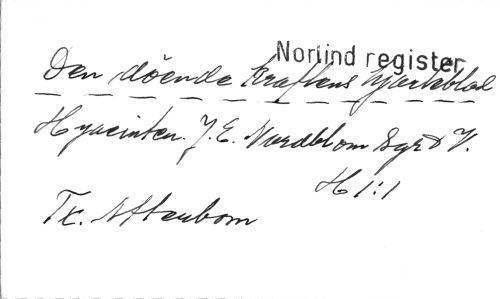 Norlind register
Den döende kraftens hjerteblad
Hyacinten. J. E. Nordblom Sgr V.
H 1:1
Tx. Atterbom